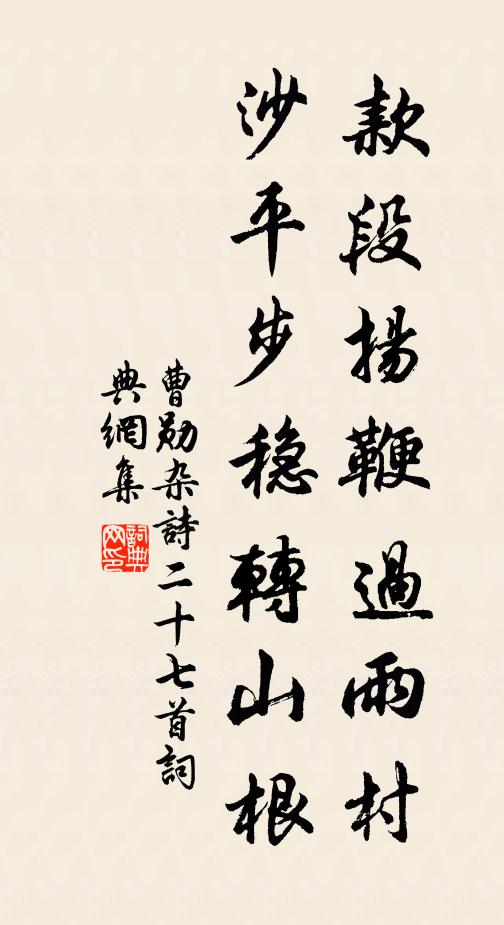 款段揚鞭過雨村
沙平步穩轉山根
曹勛杂詩二十七首詞
典網集
詞典網印